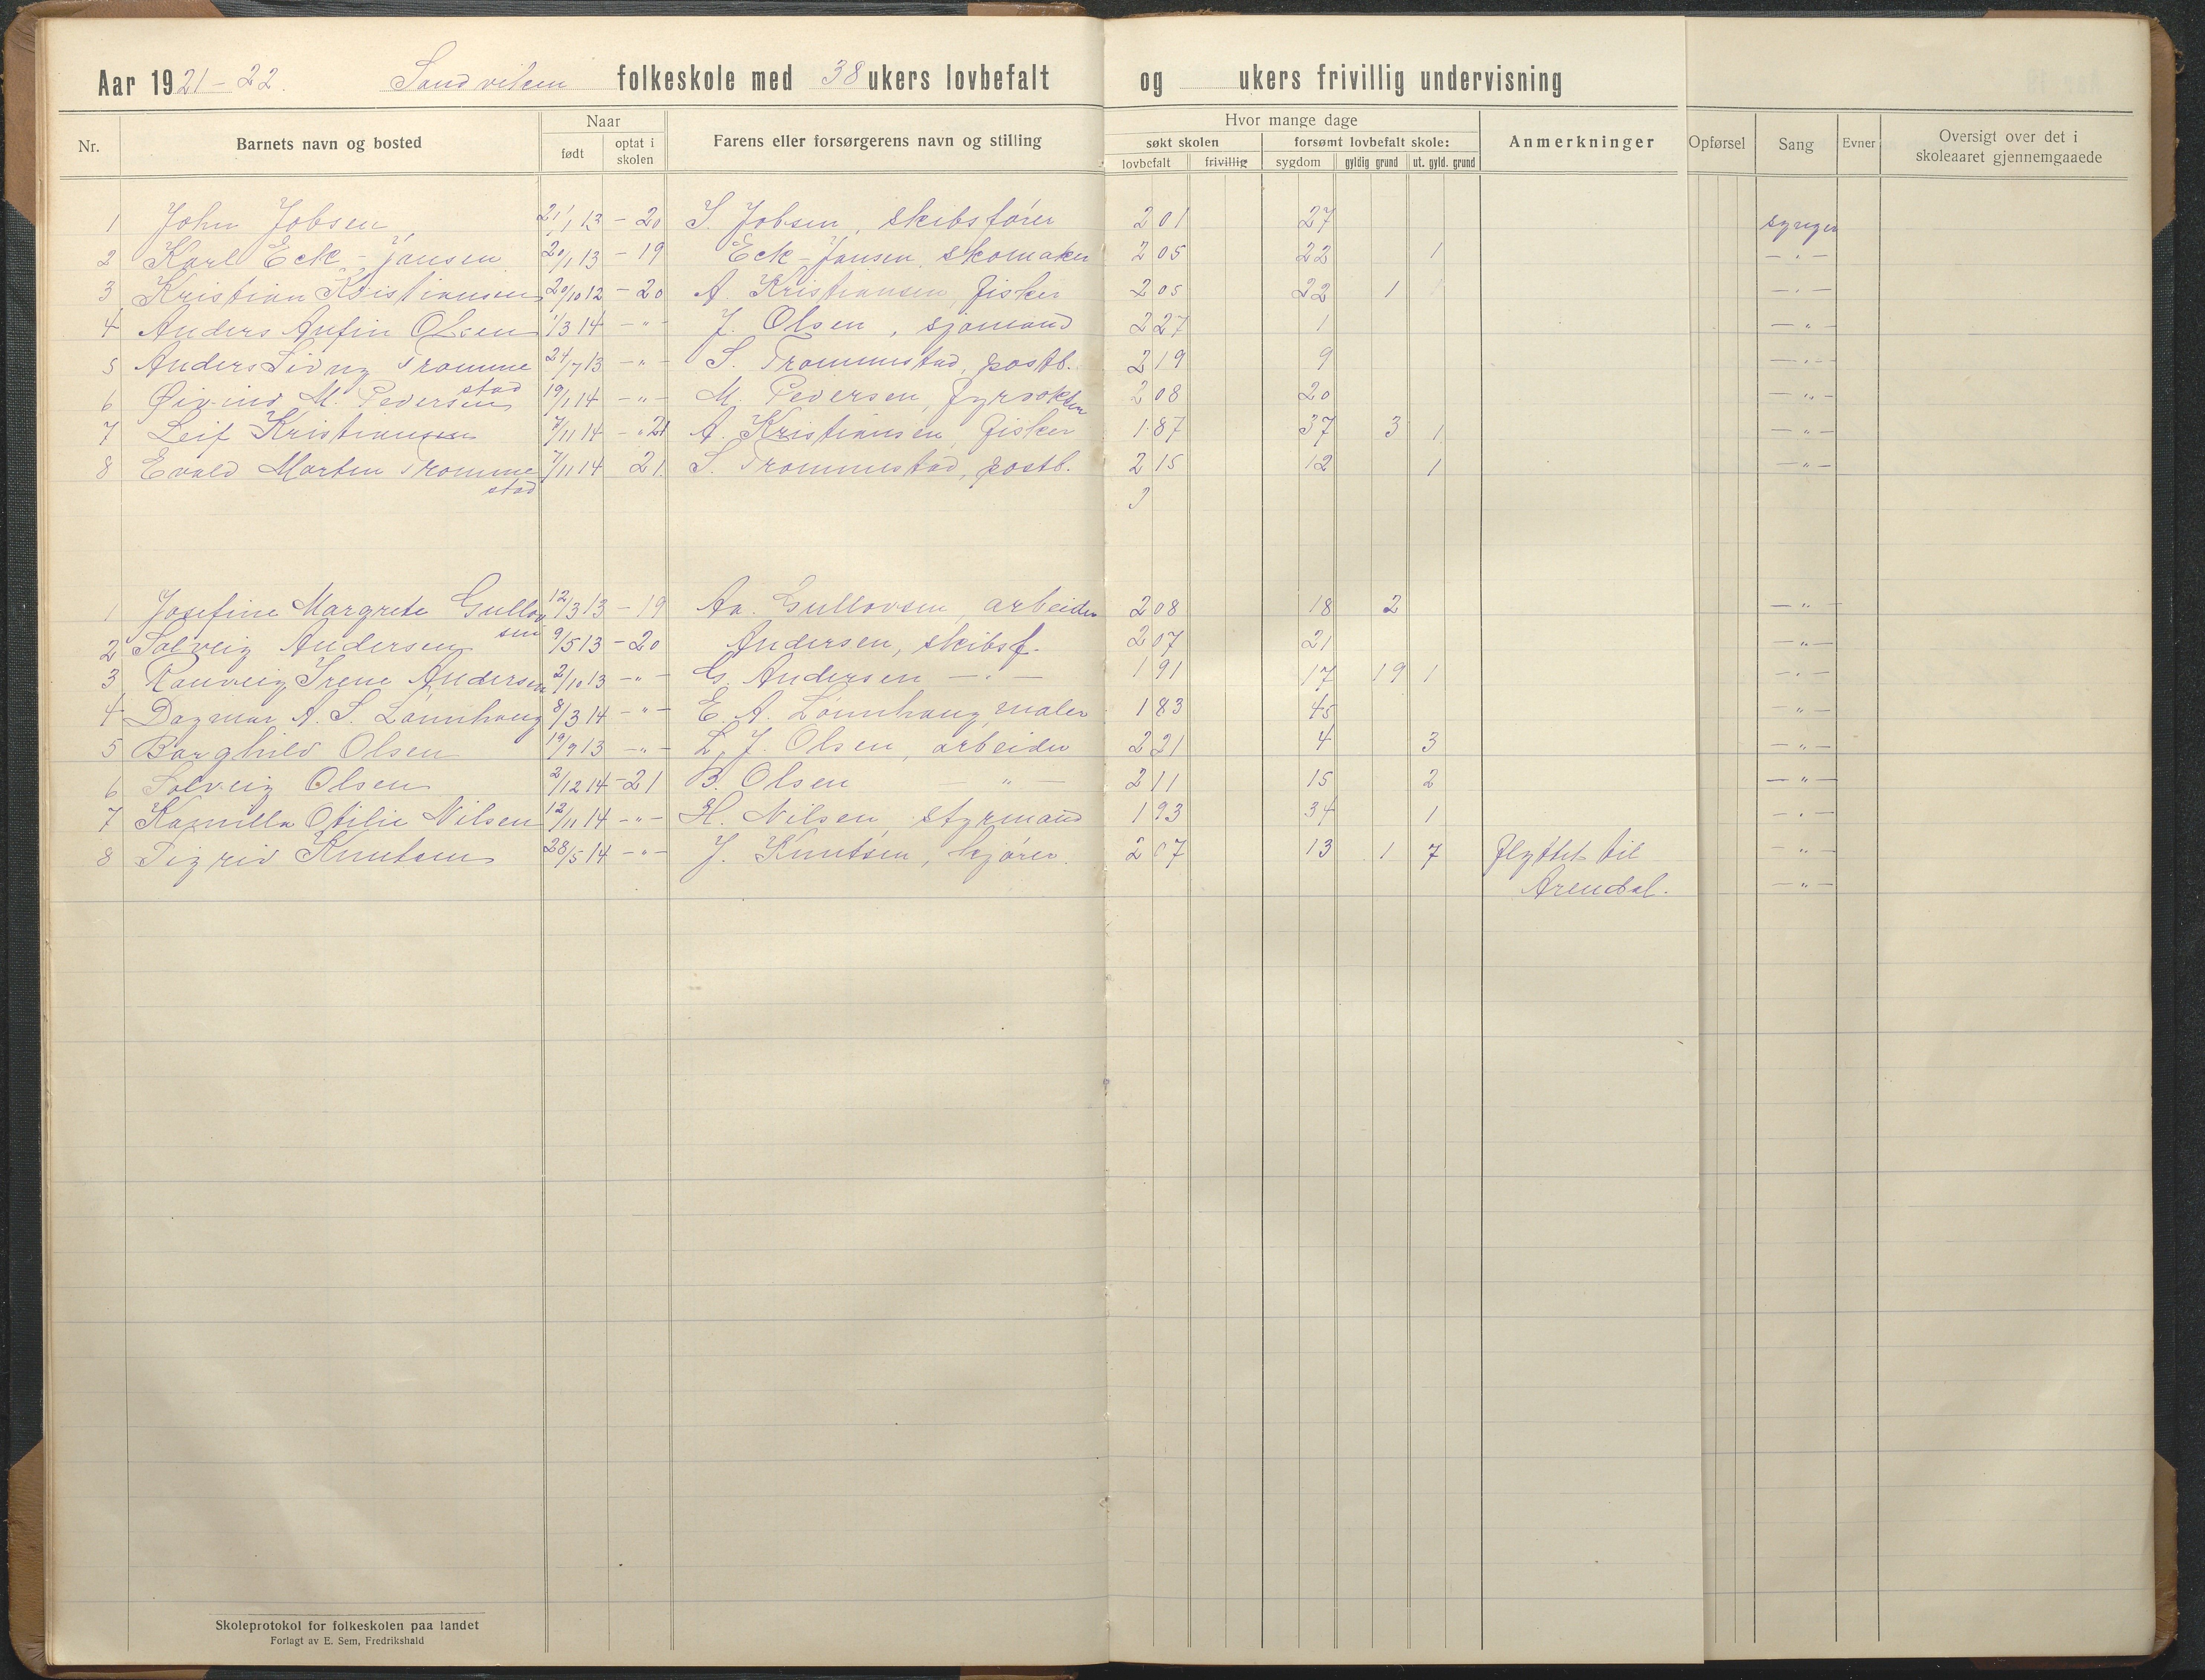 Aar 1921-22. Sandviken folkeskole med 38 ukers lovbefalt og ukers frivillig undervisning
Nr. Barnets navn og bosted Naar født optat i skolen Farens eller forsørgerens navn og stilling Hvor mange dage søkt skolen lovbefalt frivillig forsømt lovbefalt skole: sygdom gyldig grund ut. gyld. grund Anmerkninger Opførsel Sang Evner Oversigt over det i skoleaaret gjennemgaaede
1 John Jobsen 21/1 13 - 20 S. Jobsen, skibsfører 201 27 synger
2 Karl Eck-Jansen 20/1 13 - 19 Eck-Jansen, skomaker 205 22 1 - " -
3 Kristian Kristiansen 20/10 12 - 20 A. Kristiansen, fisker 205 22 1 - " -
4 Anders Anfin Olsen 1/3 14 - " - J. Olsen, sjømand 227 1 - " -
5 Anders Tromme 24/7 13 - " - S. Trommestad, postb. 219 9 - " -
stad
6 Øivind M. Pedersen 19/1 14 - " - M. Pedersen, fyrvokter 208 20 - " -
7 Leif Kristiansen 7/11 14 - " 21 A. Kristiansen, fisker 187 37 3 1 - " -
8 Evald Martin Tromme 7/11 14 21. S. Trommestad, postb. 215 12 1 - " -
stad
1 Josefine Margrete Gullov 12/3 13 - 19 Aa. Gullovsen, arbeider 208 18 2 - " -
sen
2 Solveig Andersen 9/5 13 - 20 Andersen, skibsf. 207 21 - " -
3 Ranveig Irene Andersen 2/10 13 - " - G. Andersen - " - 191 17 19 1 - " -
4 Dagmar A. S. Lønnhaug 8/3 14 - " - E. A. Lønnhaug, maler 183 45 - " -
5 Borghild Olsen 19/9 13 - " - L. J. Olsen, arbeider 221 4 3 - " -
6 Solveig Olsen 2/12 14 - 21 B. Olsen - " - 211 15 2 - " -
7 Kamilla Otilie Nilsen 12/11 14 - " - H. Nilsen, styrmand 193 34 1 - " -
8 Sigrid Knutsen 28/5 14 - " - J. Knutsen, kjører. 207 13 1 7 flyttet til - " -
Arendal. - " -
Skoleprotokol for folkeskolen paa landet
Forlagt av E. Sem, Fredrikshald